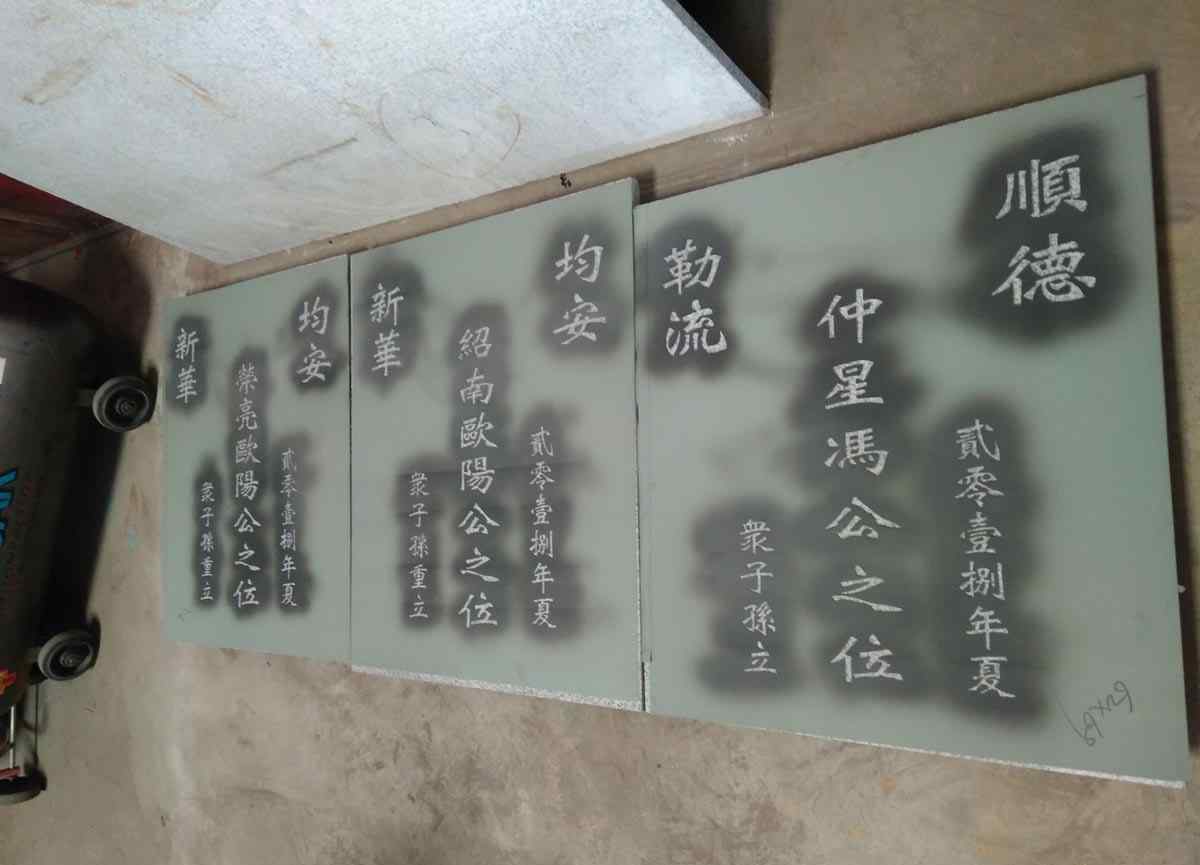 順德
貳零壹捌年夏
仲星馮公之位
眾子孫立
勒流
均安
貳零壹捌年夏
紹南歐陽公之位
眾子孫重立
新華
均安
貳零壹捌年夏
榮亮歐陽公之位
眾子孫重立
新華